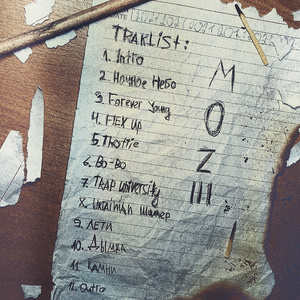 TRAKLIST:
1. Intro
2. Ночное Небо
3. Forever Young
4. FLEX UP
5. Thottie
6. Bo-Bo
7. TRAP University
8. Ukrainian
9. ЛЕТИ
10. Дымка
11. Камни
12. Outro
M
O
Z